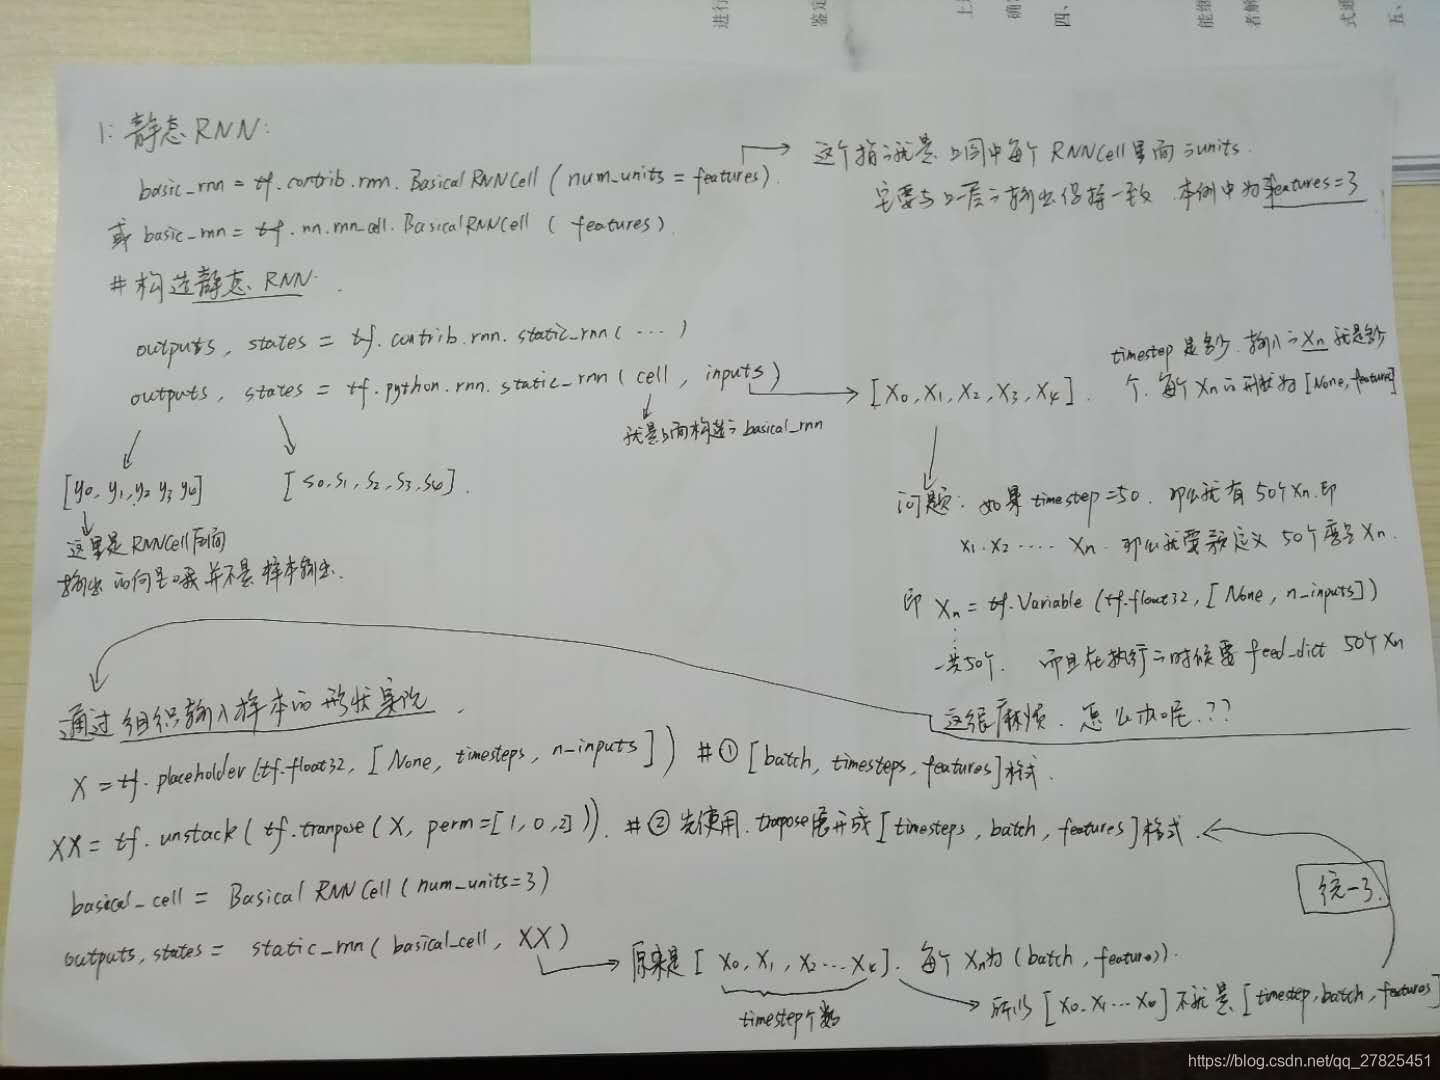 进行
鉴定
上
确
四、
能继
者解
式通
五、
1: 静态RNN:
basic_rnn = tf.contrib.rnn.BasicalRNNCell(num_units = features).
这个指的就是上图中每个RNNCell里面的units.
它要与上一层的输出保持一致.本例中为features=3
或 basic_rnn = tf.nn.rnn_cell.BasicalRNNCell( features).
# 构造静态RNN.
outputs, states = tf.contrib.rnn.static_rnn(...)
outputs, states = tf.python.rnn.static_rnn(cell, inputs)
[X0, X1, X2, X3, X4].
timestep是多少.输入的Xn就是多少
个.每个Xn的形状为[None, feature]
就是上面构造的basical_rnn
[y0, y1, y2 y3 y4]
[S0, S1, S2, S3, S4].
这里是RNNCell后面
输出的 并不是样本输出.
问题:如果timestep=50.那么就有50个Xn.即
X1. X2 .... Xn. 那么就要 定义50个变量Xn.
即 Xn = tf.Variable(tf.float32, [None, n_inputs])
一共50个. 而且在执行的时候要feed_dict 50个Xn
这很麻烦.怎么办呢.??
通过组织输入样本的形状实现.
X = tf.placeholder(tf.float32, [None, timesteps, n_inputs]) # ① [batch, timesteps, features]格式.
XX = tf.unstack(tf.tranpose(X, perm=[1,0,2])). # ② 先使用.tranpose展开成[timesteps, batch, features]格式.
统一了.
basical_cell = BasicalRNNCell(num_units=3)
outputs, states = static_rnn(basical_cell, XX)
原来是[X0, X1, X2...X4]. 每个Xn为(batch, features).
timestep个数
所以[X0. X1...X4]不就是[timestep, batch, features]
https://blog.csdn.net/qq_27825451